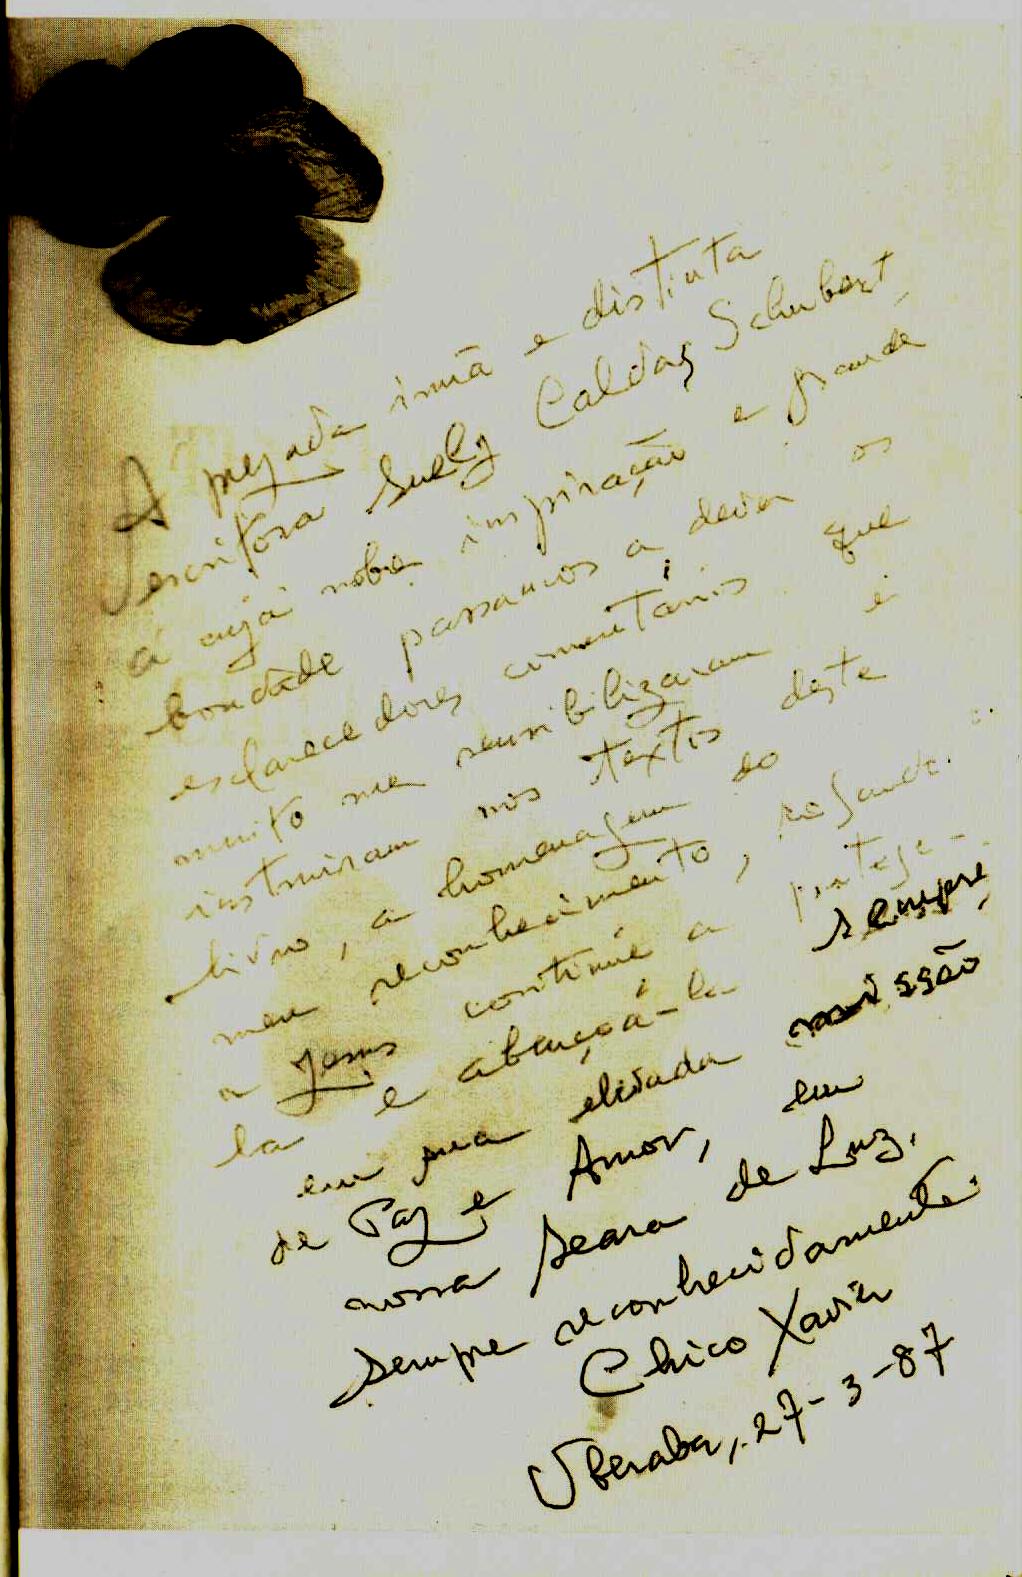 A prezada irmã e distinta
escritora Suely Caldas Schubert,
á cuja nobre inspiração e grande
bondade passamos a dever os
esclarecedores comentários que
muito me sensibilizaram e
instruiram nos textos deste
livro, a homenagem do
meu reconhecimento, rogando
a Jesus continúe a protege-
la e abençoá-la sempre,
em sua elevada missão
de Paz e Amor, em
nossa Seara de Luz.
Sempre reconhecidamente.
Chico Xavier
Uberaba, 27-3-87